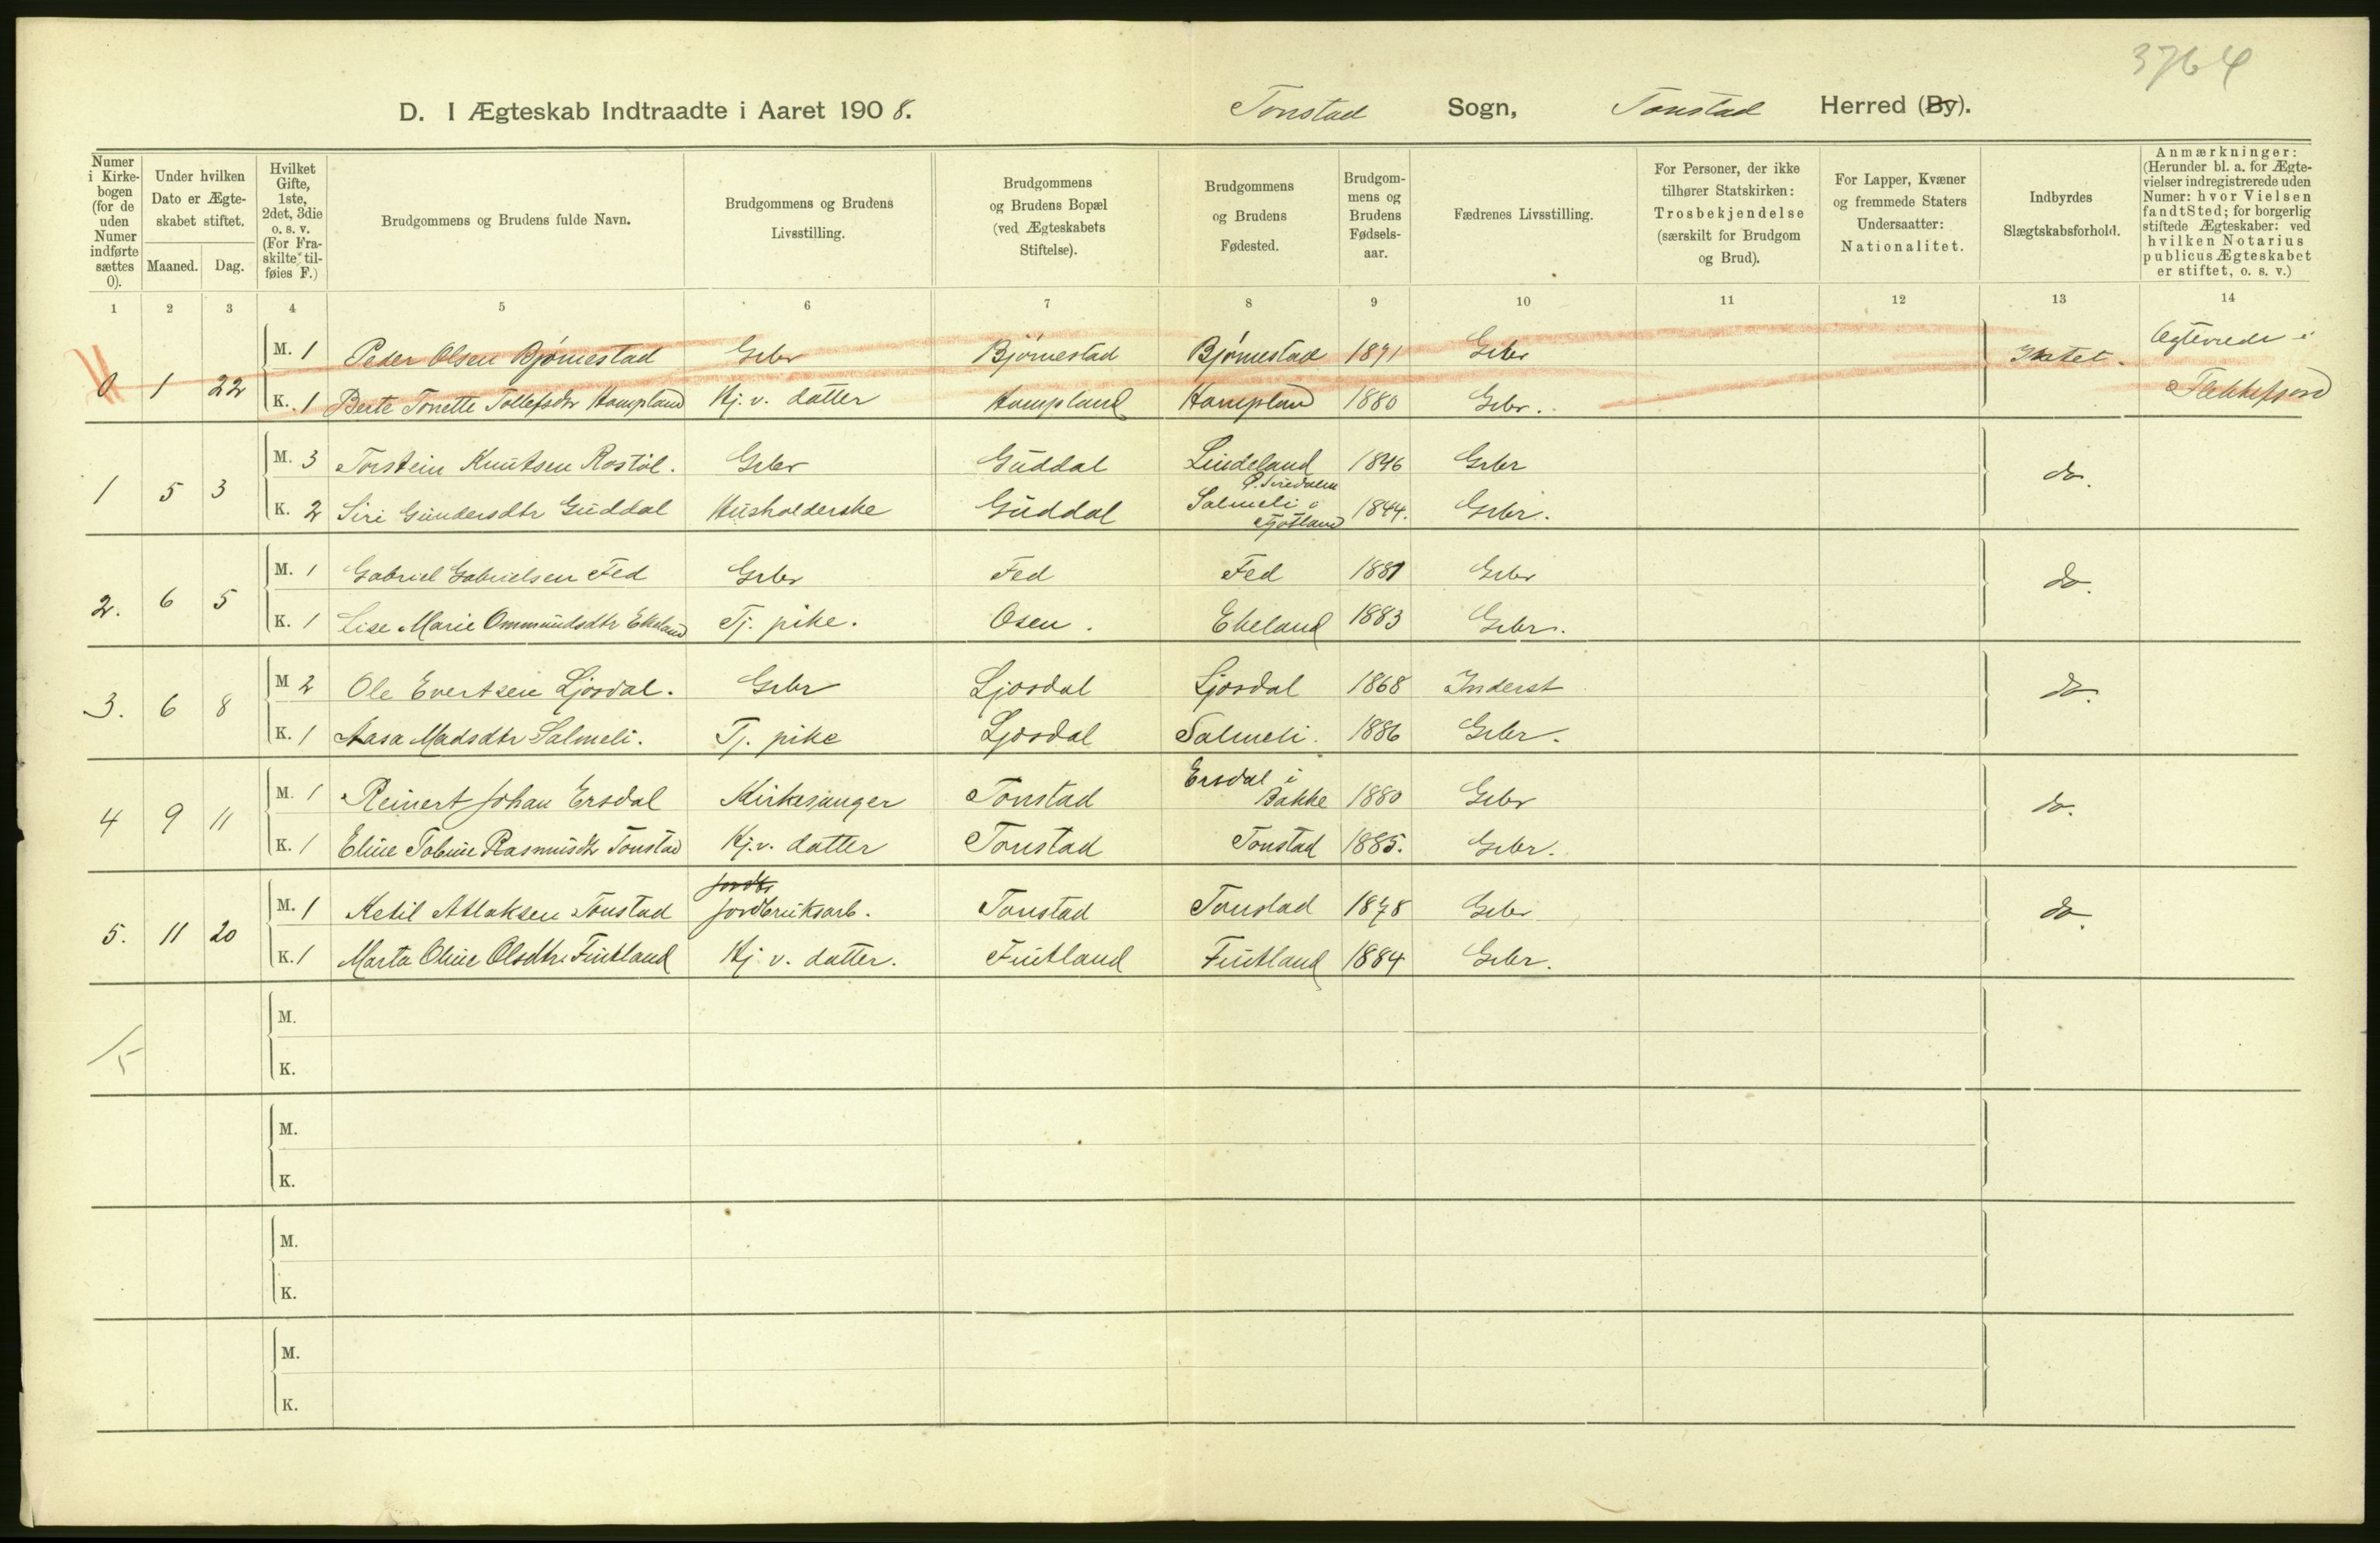 3764
D. I Ægteskab Indtraadte i Aaret 1908. Tonstad Sogn, Tonstad Herred (By).
Numer i Kirkebogen (for de uden Numer indførte sættes 0).
Under hvilken Dato er Ægteskabet stiftet.
Maaned. Dag.
Hvilket Gifte, 1ste, 2det, 3die o. s. v. (For Fraskilte tilføies F.)
Brudgommens og Brudens fulde Navn.
Brudgommens og Brudens Livsstilling.
Brudgommens og Brudens Bopæl (ved Ægteskabets Stiftelse).
Brudgommens og Brudens Fødested.
Brudgommens og Brudens Fødselsaar.
Fædrenes Livsstilling.
For Personer, der ikke tilhører Statskirken: Trosbekjendelse (særskilt for Brudgom og Brud).
For Lapper, Kvæner og fremmede Staters Undersaatter: Nationalitet.
Indbyrdes Slægtskabsforhold.
Anmærkninger: (Herunder bl. a. for Ægtevielser indregistrerede uden Numer: hvor Vielsen fandt Sted; for borgerlig stiftede Ægteskaber: ved hvilken Notarius publicus Ægteskabet er stiftet, o. s. v.)
1 2 3 4 5 6 7 8 9 10 11 12 13 14
M. 1 Peder Olsen Bjørnestad Gbr Bjørnestad Bjørnestad 1871 Gbr Intet. Ægteviede i
0 1 22 K. 1 Berte Tonette Tollefsdtr Hompland Kj. v. datter Hompland Hompland 1880 Gbr. Flekkefjord
M. 3 Torstein Knutsen Rostøl. Gbr Guddal Lindeland Ø. Siredalen 1846 Gbr do.
1 5 3 K. 2 Siri Gundersdtr Guddal Husholderske Guddal Salmeli i Gyland 1844. Gbr.
M. 1 Gabriel Gabrielsen Fed Gbr Fed Fed 1881 Gbr do.
2. 6 5 K. 1 Lise Marie Ommundsdtr Ekeland Tj. pike. Osen. Ekeland 1883 Gbr.
M 2 Ole Evertsen Ljosdal. Gbr Ljosdal Ljosdal 1868 Inderst do.
3. 6 8 K. 1 Aasa Madsdtr Salmeli. Tj. pike Ljosdal Salmeli. 1886 Gbr.
M. 1 Reinert Johan Ersdal Kirkesanger Tonstad Ersdal i Bakke 1880 Gbr do.
4 9 11 K. 1 Eline Tobine Rasmusdtr Tonstad Kj. v. datter Tonstad Tonstad 1885. Gbr.
M. 1 Ketil Atlaksen Tonstad Jordbruksarb. Tonstad Tonstad 1878 Gbr do.
5. 11 20 K. 1 Marta Oline Olsdtr. Fintland Kj. v. datter. Fintland Fintland 1884 Gbr.
M.
5
K.
M.
K.
M.
K.
M.
K.